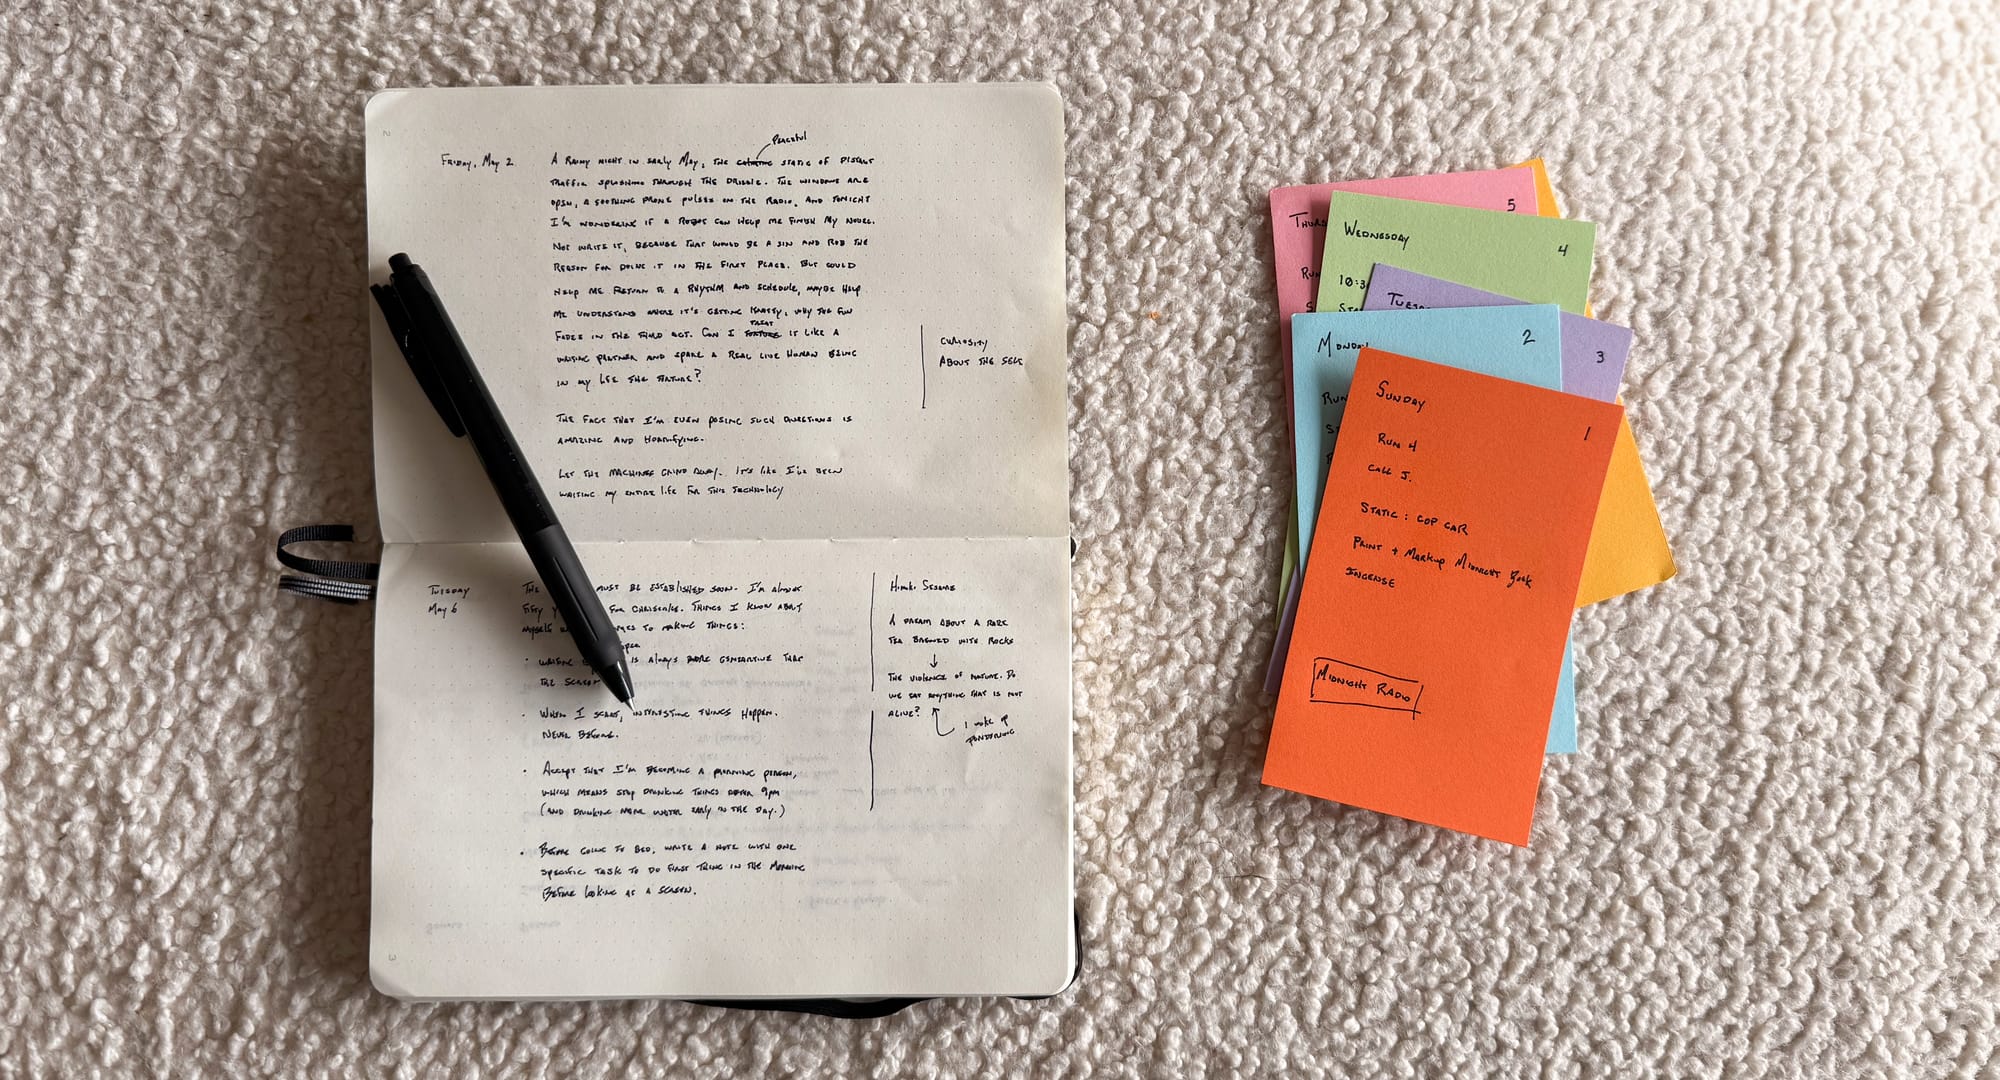 2
Friday, May 2
Peaceful
A rainy night in early May, the static of distant
traffic splashing through the drizzle. The windows are
open, a soothing drone pulses on the radio, and tonight
I'm wondering if a robot can help me finish my novel.
Not write it, because that would be a sin and rob the
reason for doing it in the first place. But could
help me return to a rhythm and schedule, maybe help
me understand where it's getting knotty, why the fun
fades in the third act. Can I treat it like a
writing partner and spare a real live human being
in my life the torture?
The fact that I'm even posing such questions is
amazing and horrifying.
Let the machines grind away. It's like I've been
waiting my entire life for this technology
Curiosity
about the self
Tuesday
May 6
The must be established soon. I'm almost
fifty for chrissakes. Things I know about
myself to making things:
• Writing is always more generative that
the screen
• When I start, interesting things happen.
Never before.
• Accept that I'm becoming a morning person,
which means stop drinking things after 9pm
(and drinking more water early in the day.)
• Before going to bed, write a note with one
specific task to do first thing in the morning
before looking at a screen.
A dream about a rare
tea brewed with rocks
↓
The violence of nature. Do
we eat anything that is not
alive?
I woke up
pondering
3
Thurs
5
Run
S
Wednesday
4
10:3
Sta
Tuesd
3
Monday
2
Run
St
Sunday
1
Run 4
Call J.
Static: Cop Car
Print + Markup Midnight Book
Incense
Midnight Radio